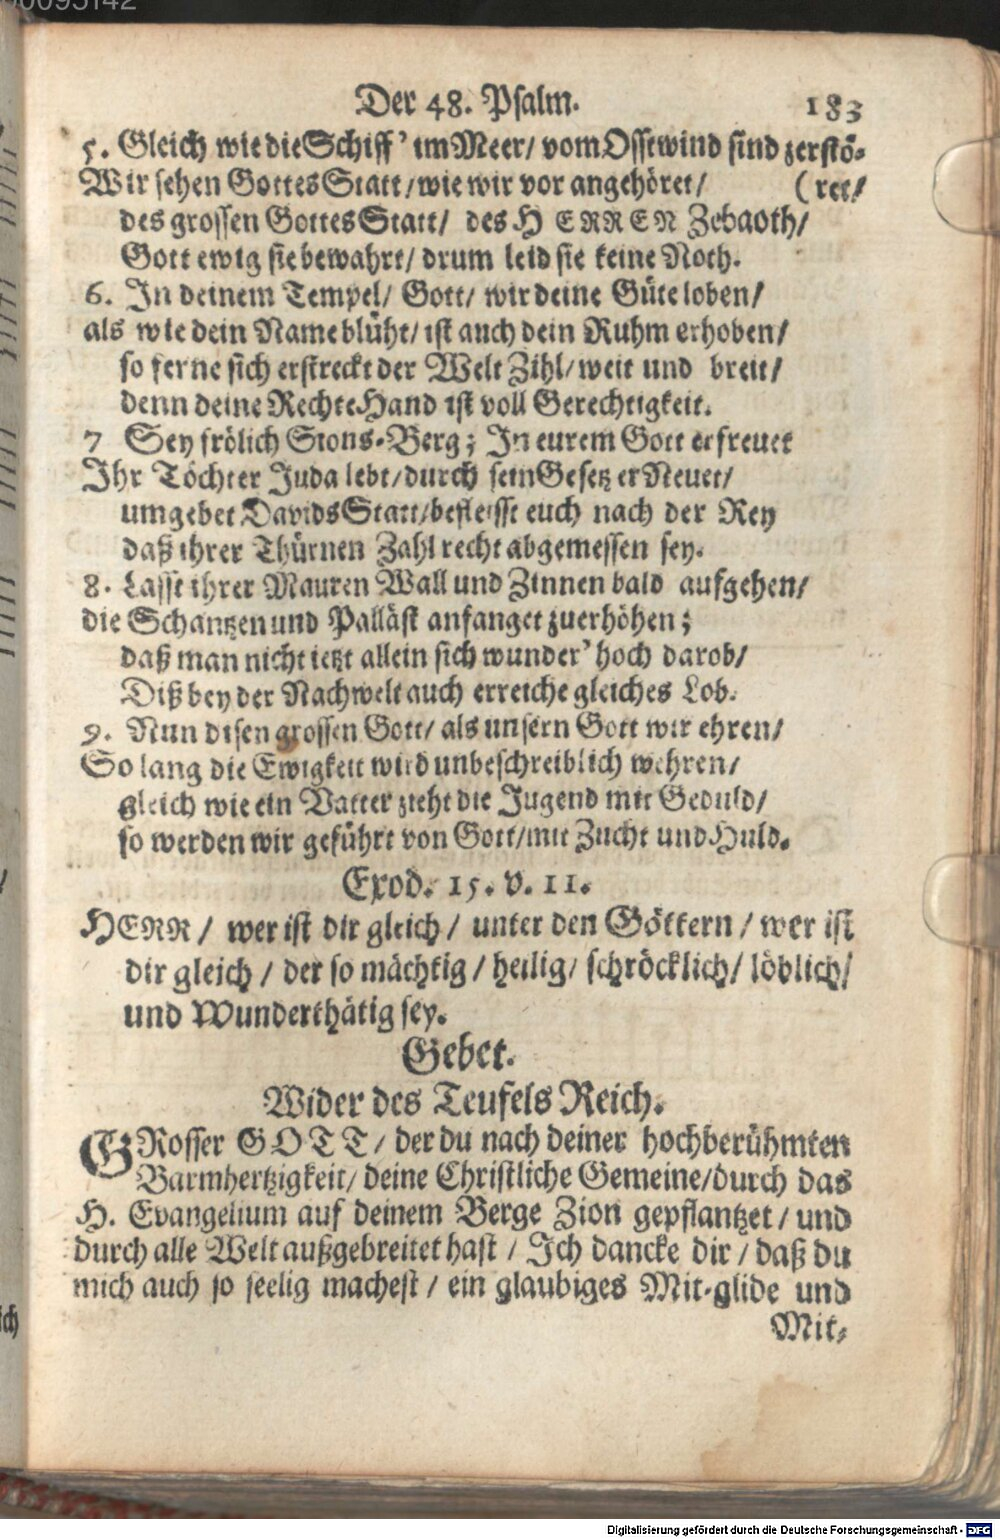 Der 48. Psalm. 183
5. Gleich wie die Schiff’ im Meer/ vom Ostwind sind zerstö-
Wir sehen Gottes Statt/ wie wir vor angehöret/ (ret/
des grossen Gottes Statt/ des HERREN Zebaoth/
Gott ewig sie bewahrt/ drum leid sie keine Noth.
6. In deinem Tempel/ Gott/ wir deine Güte loben/
als wie dein Name blüht/ ist auch dein Ruhm erhoben/
so ferne sich erstreckt der Welt Zihl/ weit und breit/
denn deine Rechte Hand ist voll Gerechtigkeit.
7 Sey frölich Sions-Berg; In eurem Gott erfreuet
Ihr Töchter Juda lebt/ durch sein Gesetz erNeuet/
umgebet Davids Statt/ befleisst euch nach der Rey
daß ihrer Thürnen Zahl recht abgemessen sey.
8. Lasst ihrer Mauren Wall und Zinnen bald aufgehen/
die Schantzen und Palläst anfanget zuerhöhen;
daß man nicht ietzt allein sich wunder’ hoch darob/
Diß bey der Nachwelt auch erreiche gleiches Lob.
9. Nun disen grossen Gott/ als unsern Gott wir ehren/
So lang die Ewigkeit wird unbeschreiblich wehren/
gleich wie ein Vatter zieht die Jugend mit Geduld/
so werden wir geführt von Gott/ mit Zucht und Huld.
Exod. 15. v. 11.
HERR/ wer ist dir gleich/ unter den Göttern/ wer ist
dir gleich/ der so mächtig/ heilig/ schröcklich/ löblich/
und Wunderthätig sey.
Gebet.
Wider des Teufels Reich.
GRosser GOTT/ der du nach deiner hochberühmten
Barmhertzigkeit/ deine Christliche Gemeine/ durch das
H. Evangelium auf deinem Berge Zion gepflantzet/ und
durch alle Welt außgebreitet hast/ Ich dancke dir/ daß du
mich auch so seelig machest/ ein glaubiges Mit-glide und
Mit-
Digitalisierung gefördert durch die Deutsche Forschungsgemeinschaft - DFG